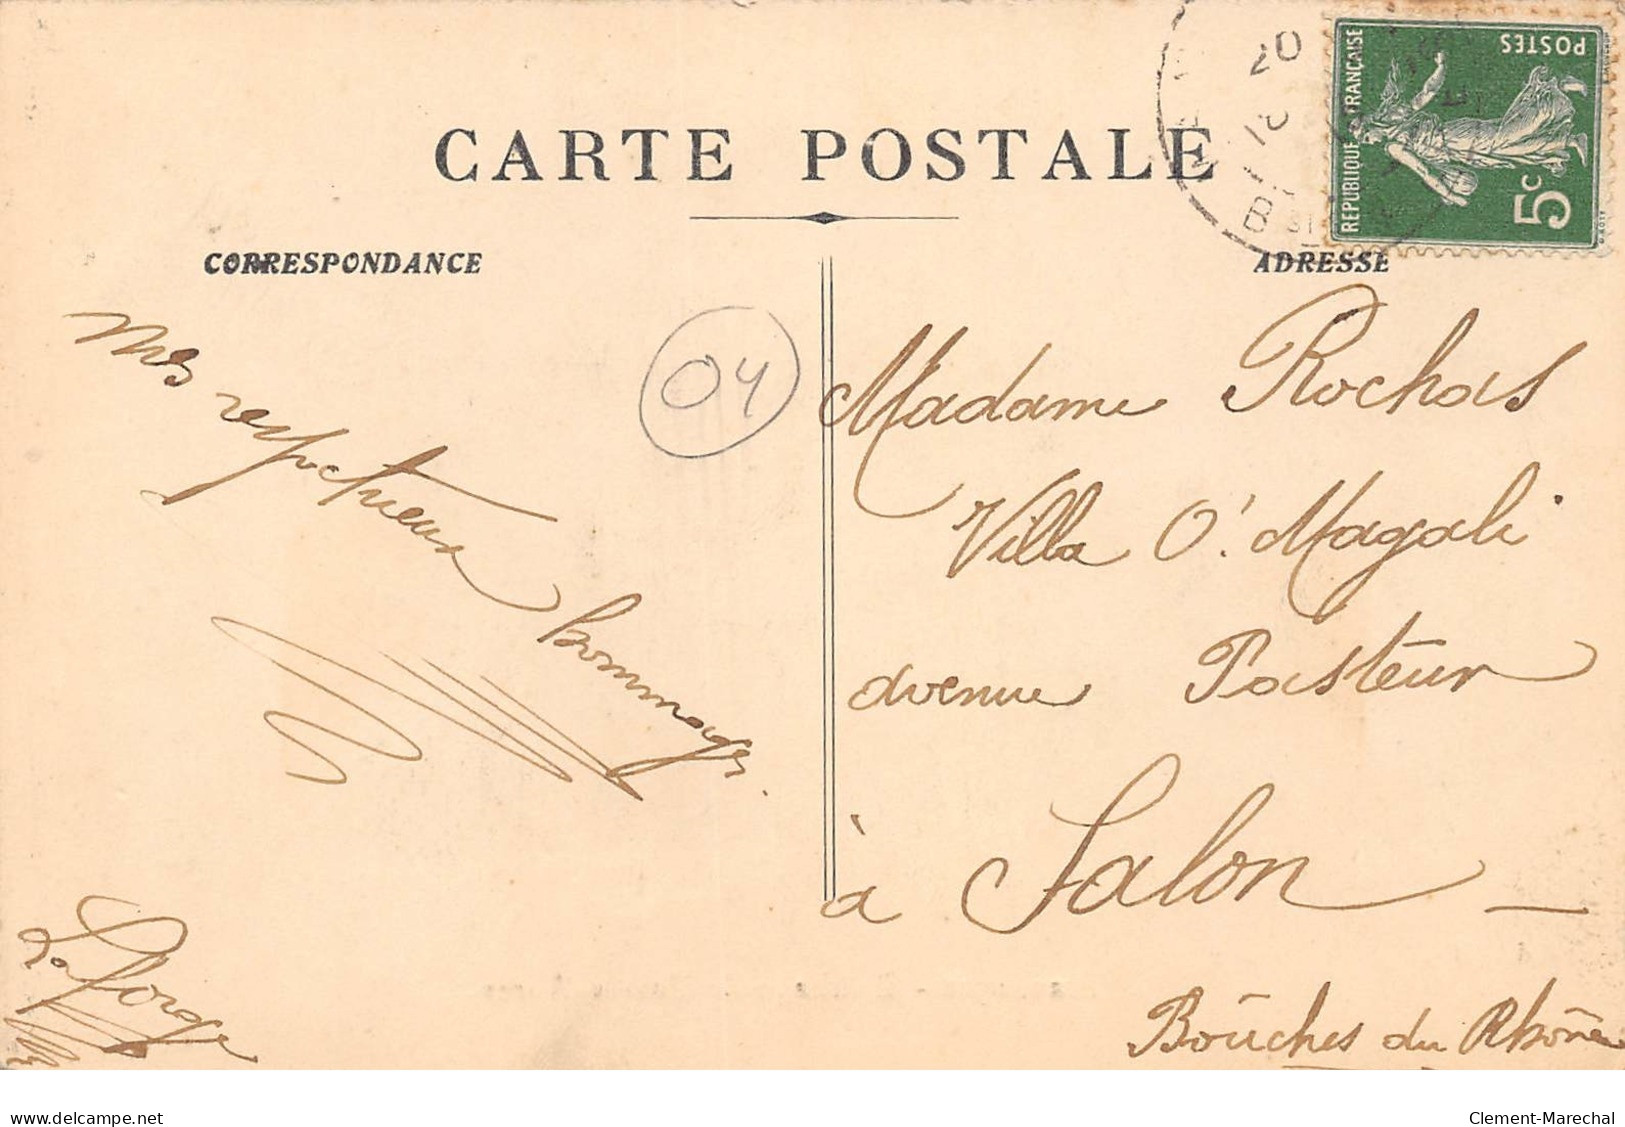 CARTE POSTALE
CORRESPONDANCE
ADRESSE
REPUBLIQUE FRANÇAISE
POSTES
5c
20
18
04
Mes respectueux hommages.
Laforge
Madame Rochas
Villa O! Magali
avenue Pasteur
à Salon —
Bouches du Rhône
www.delcampe.net
Clement-Marechal